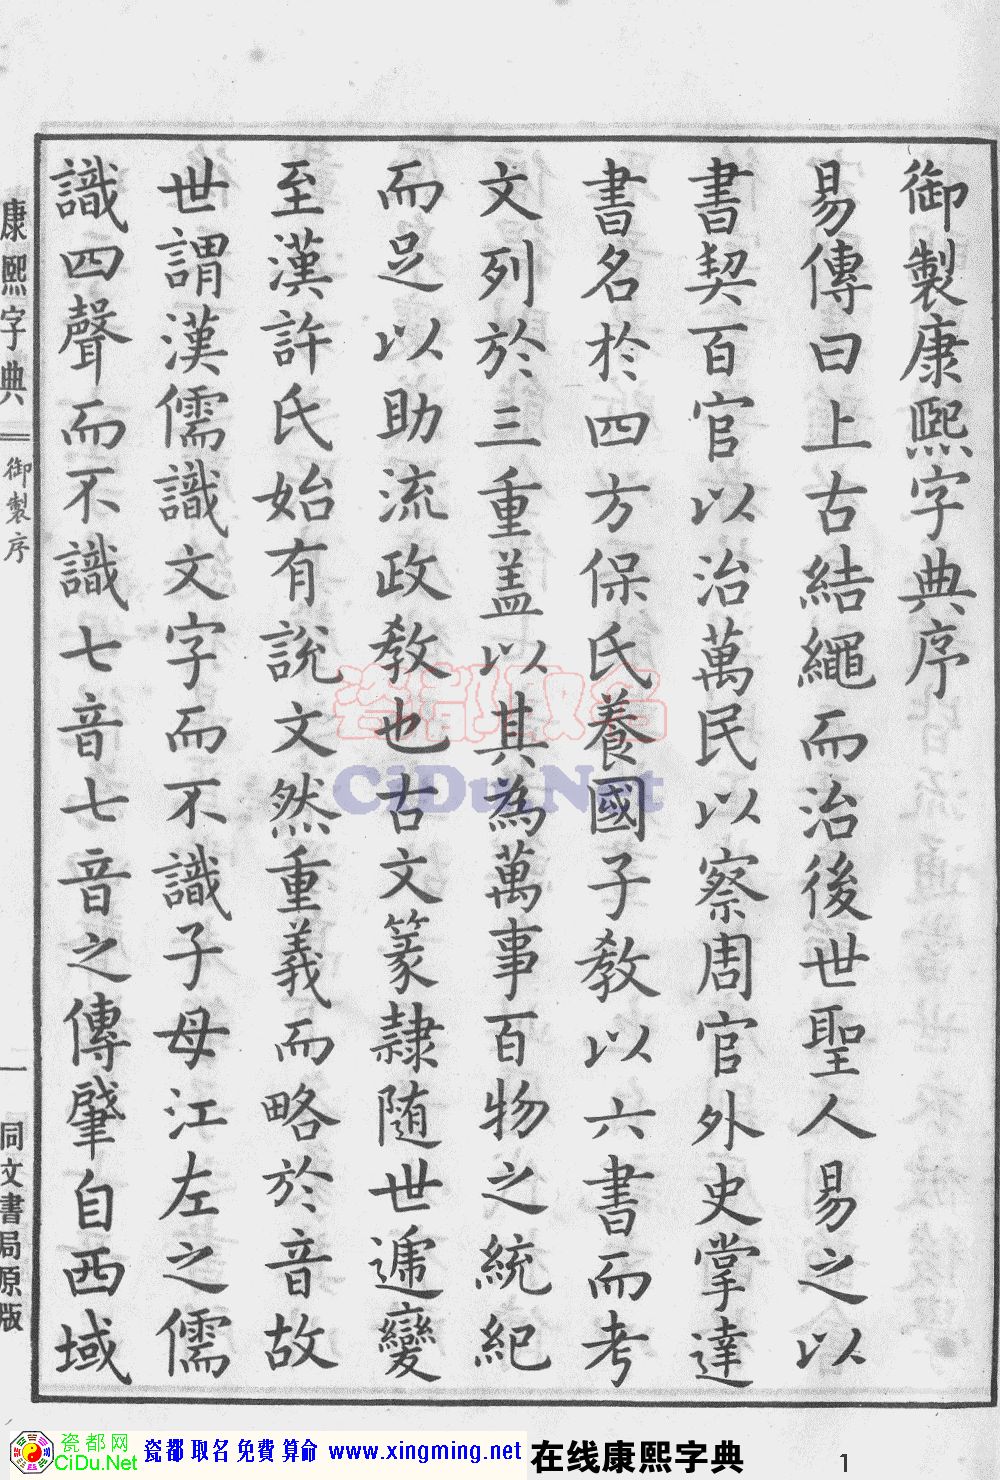 御製康熙字典序
易傳曰上古結繩而治後世聖人易之以
書契百官以治萬民以察周官外史掌達
書名於四方保氏養國子教以六書而考
文列於三重盖以其為萬事百物之統紀
而足以助流政教也古文篆隸随世遞變
至漢許氏始有說文然重義而略於音故
世謂漢儒識文字而不識子母江左之儒
識四聲而不識七音七音之傳肇自西域
康熙字典
御製序
一
同文書局原版
瓷都取名
CiDu.Net
瓷都网
CiDu.Net
瓷都取名免費算命 www.xingming.net 在线康熙字典 1